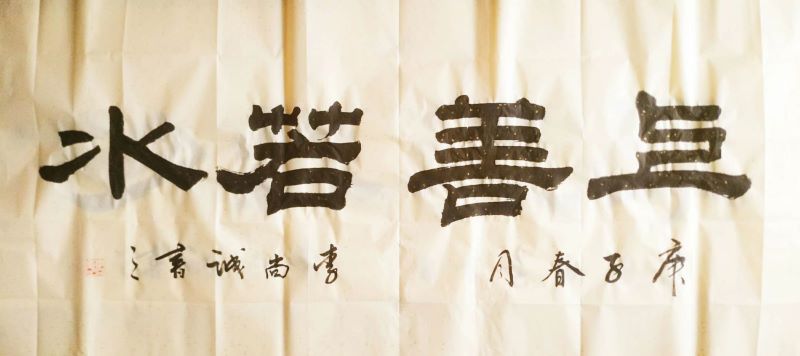 且善若水
庚子春月
李尚诚書之